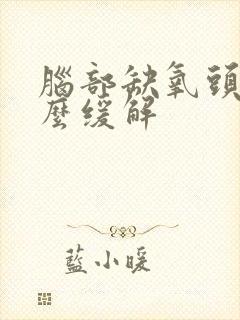 腦部缺氧頭
麼緩解
藍小暖